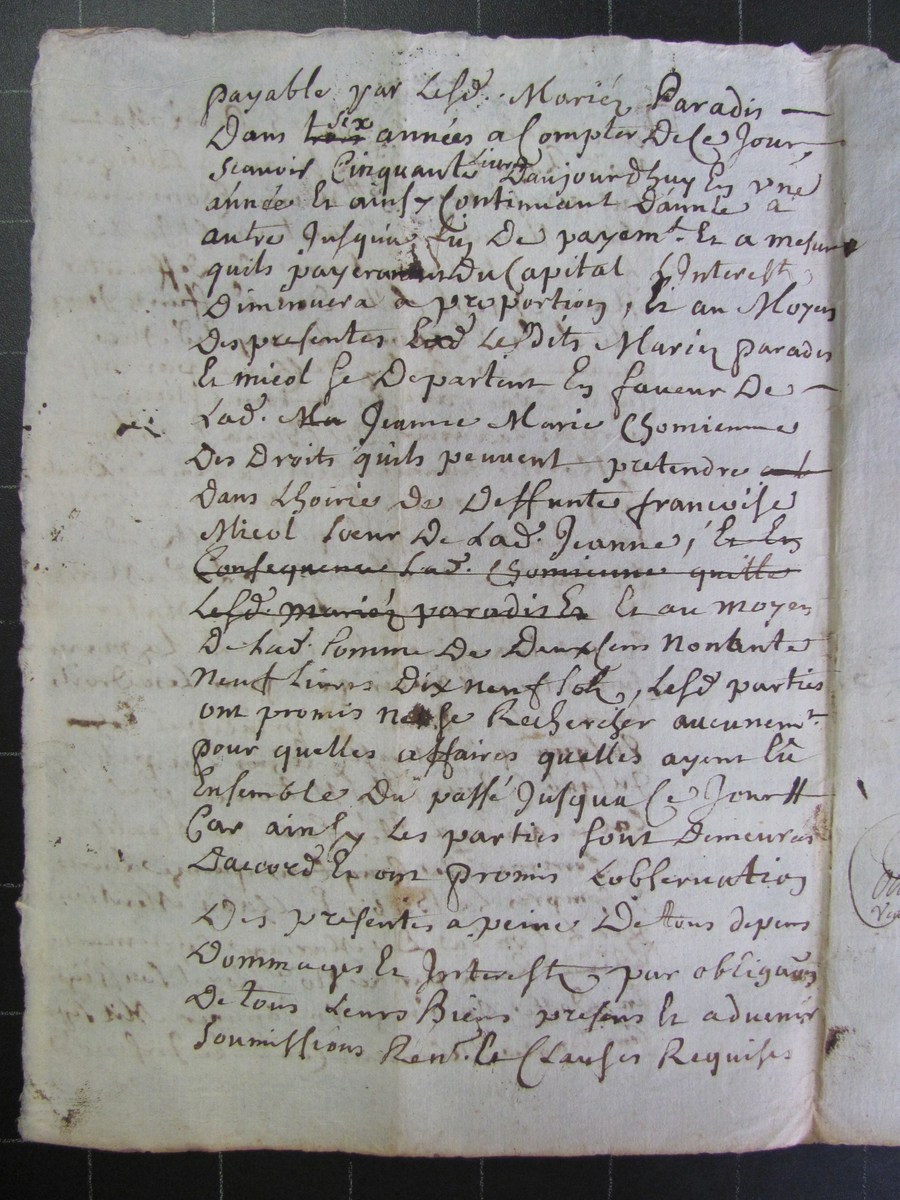 payable par Lesd. Mariéz Paradis
Dans trois six années a Compter De Ce Jour,
scavoir Cinquante Livres Daujourdhuy En vne
année Et ainsy Continuant Dannée a
autre Jusqua fin De payemt. Et a mesure
quils payeront Du Capital LInterest
Diminuera a proportion, Et au Moyen
Des presentes Lad Lesdits Mariez paradis
Et micol se Departent En faveur De
Lad. Ma Jeanne Marie Chomienne
Des Droits quils peuvent pretendre
Dans Lhoirie de Deffunte francoise
Micol soeur De Lad. Jeanne, Et En
Consequence Lad. Chomienne quitte
Lesd. mariéz paradis Et Et au moyen
De Lad. somme De Deux Cens Nonante
Neuf Livres Dix neuf sols, Lesd parties
ont promis ne se Rechercher aucunemt.
pour quelles affaires quelles ayent Eû
Ensemble Du passé Jusqua Ce Jour
Car ainsy Les parties sont Demeurées
Daccord Et ont promis Lobservation
Des presentes a peine De tous depens
Dommages Et Interests par obligaon
De tous Leurs Biens presens Et advenir
soumissions Renon. Et Clauses Requises